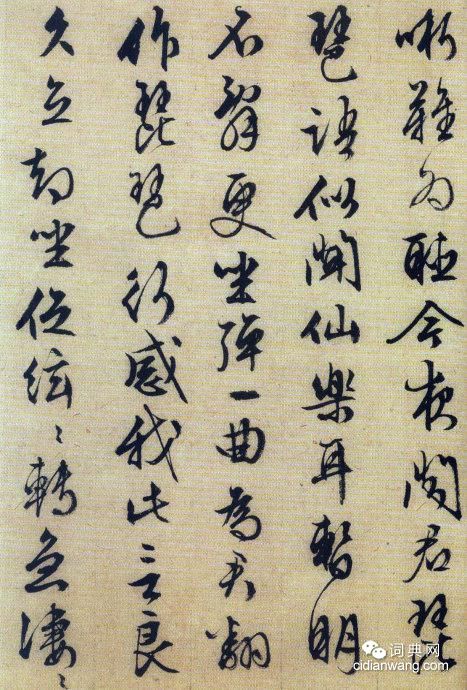 哳難為聽今夜聞君琵
琶語似聞仙樂耳暫明
辭更坐彈一曲為君翻
作琵琶行感我此言良
久立却坐促絃〻轉急凄〻
词典网
cidianwang.com